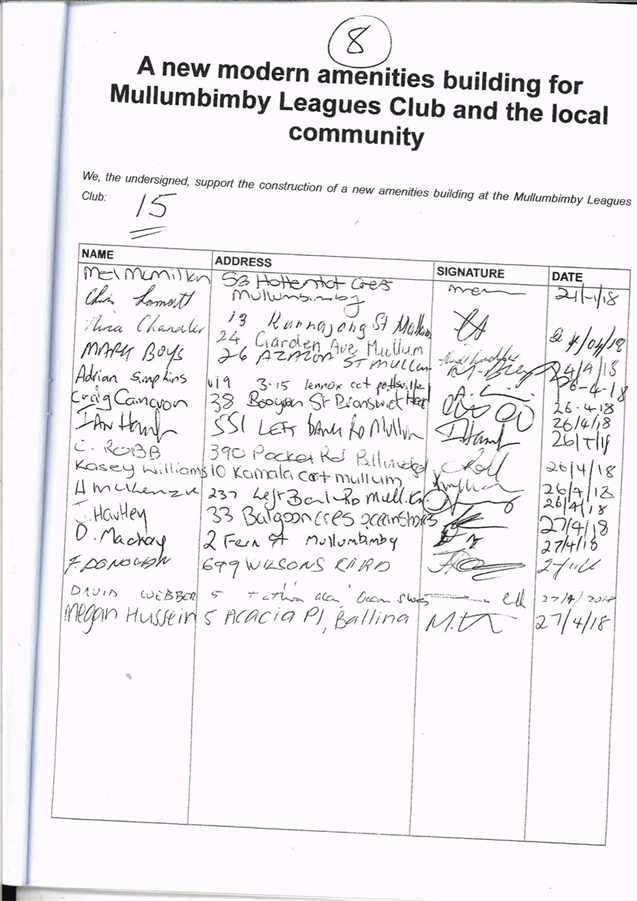 8
A new modern amenities building for
Mullumbimby Leagues Club and the local
community
We, the undersigned, support the construction of a new amenities building at the Mullumbimby Leagues
Club:
15
NAME ADDRESS SIGNATURE DATE
Mel McMillan 53 Hottentot Cres
Mullumbimby 21/4/18
Chris
Nina Chandler 13 Kurrajong St Mullum
24 Garden Ave, Mullum
MARK BOYS 26 AZALEA ST MULLUM 24/4/18
Adrian Simpkins U19 3-15 lennox cct pottsville 26-4-18
Craig Cameron 38 Booyun St Brunswick 26-4-18
IAN 551 LEFT BANK RD Mullum 26/4/18
C. ROBB 390 Pocket Rd 26/4/18
Kasey Williams 10 Kamala crt mullum 26/4/18
H McKenzie 237 Left Bank Rd Mull. 26/4/18
Hawley 33 Balgoon cres ocean shores 27/4/18
D. Mackay 2 Fern St Mullumbimby 27/4/18
F. DONOGHAN 699 WILSONS
DAVID WEBBER 5 Ocean Shores 27/4/2018
Megan Hussein 5 Acacia Pl, Ballina M.H 27/4/18